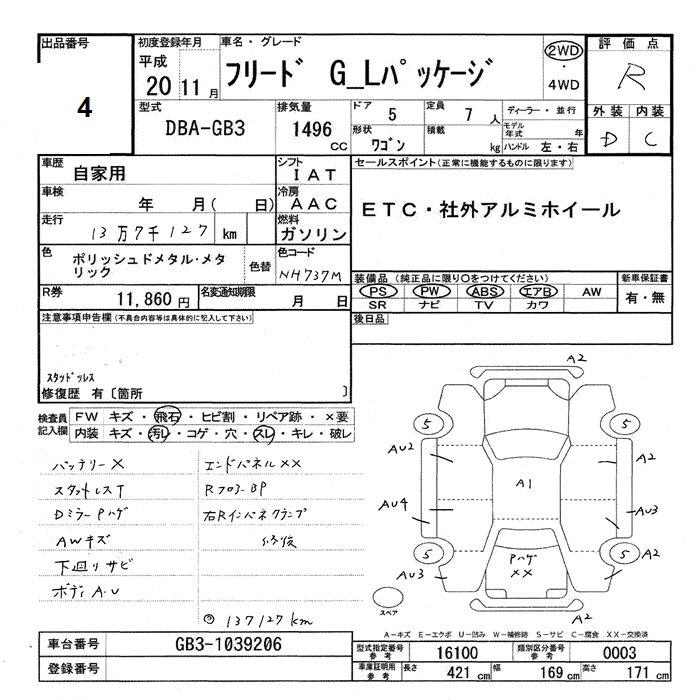 出品番号
4
初度登録年月
平成
20 11 月
車名・グレード
フリード G_Lパッケージ
2WD
・
4WD
評価点
R
外装 内装
D C
型式
DBA-GB3
排気量
1496
cc
ドア 5
定員 7 人
ディーラー・並行
形状 ワゴン
積載 kg
モデル年式 年
ハンドル 左・右
車歴
自家用
シフト
IAT
セールスポイント(正常に機能するものに限ります)
ETC・社外アルミホイール
車検
年 月( 日)
冷房
AAC
走行
13万7千127 km
燃料
ガソリン
色
ポリッシュドメタル・メタリック
色替
色コード
NH737M
装備品 (純正品に限り〇をつけてください)
新車保証書
PS PW ABS エアB AW
SR ナビ TV カワ
有・無
R券
11,860 円
名変通知期限
月 日
後日品
注意事項申告欄(不具合内容等は具体的に記入して下さい)
スタッドレス
修復歴 有〔箇所 〕
検査員
記入欄
FW キズ・飛石・ヒビ割・リペア跡・×要
内装 キズ・汚レ・コゲ・穴・スレ・キレ・破レ
バッテリー×
スタットレスT
Dミラー Pハゲ
AWキズ
下廻りサビ
ボディA・U
エンドパネル××
Rフロアー BP
右Rインパネクランプ
修復
137127km
A2
5
5
AU2
A2
A1
AU4
AU3
5
5
A2
Pハゲ
××
AU3
スペア
A2
A-キズ E-エクボ U-凹み W-補修跡 S-サビ C-腐食 XX-交換済
車台番号
GB3-1039206
登録番号
型式指定番号
参考
16100
類別区分番号
参考
0003
車庫証明用
参考
長さ 421 cm
幅 169 cm
高さ 171 cm